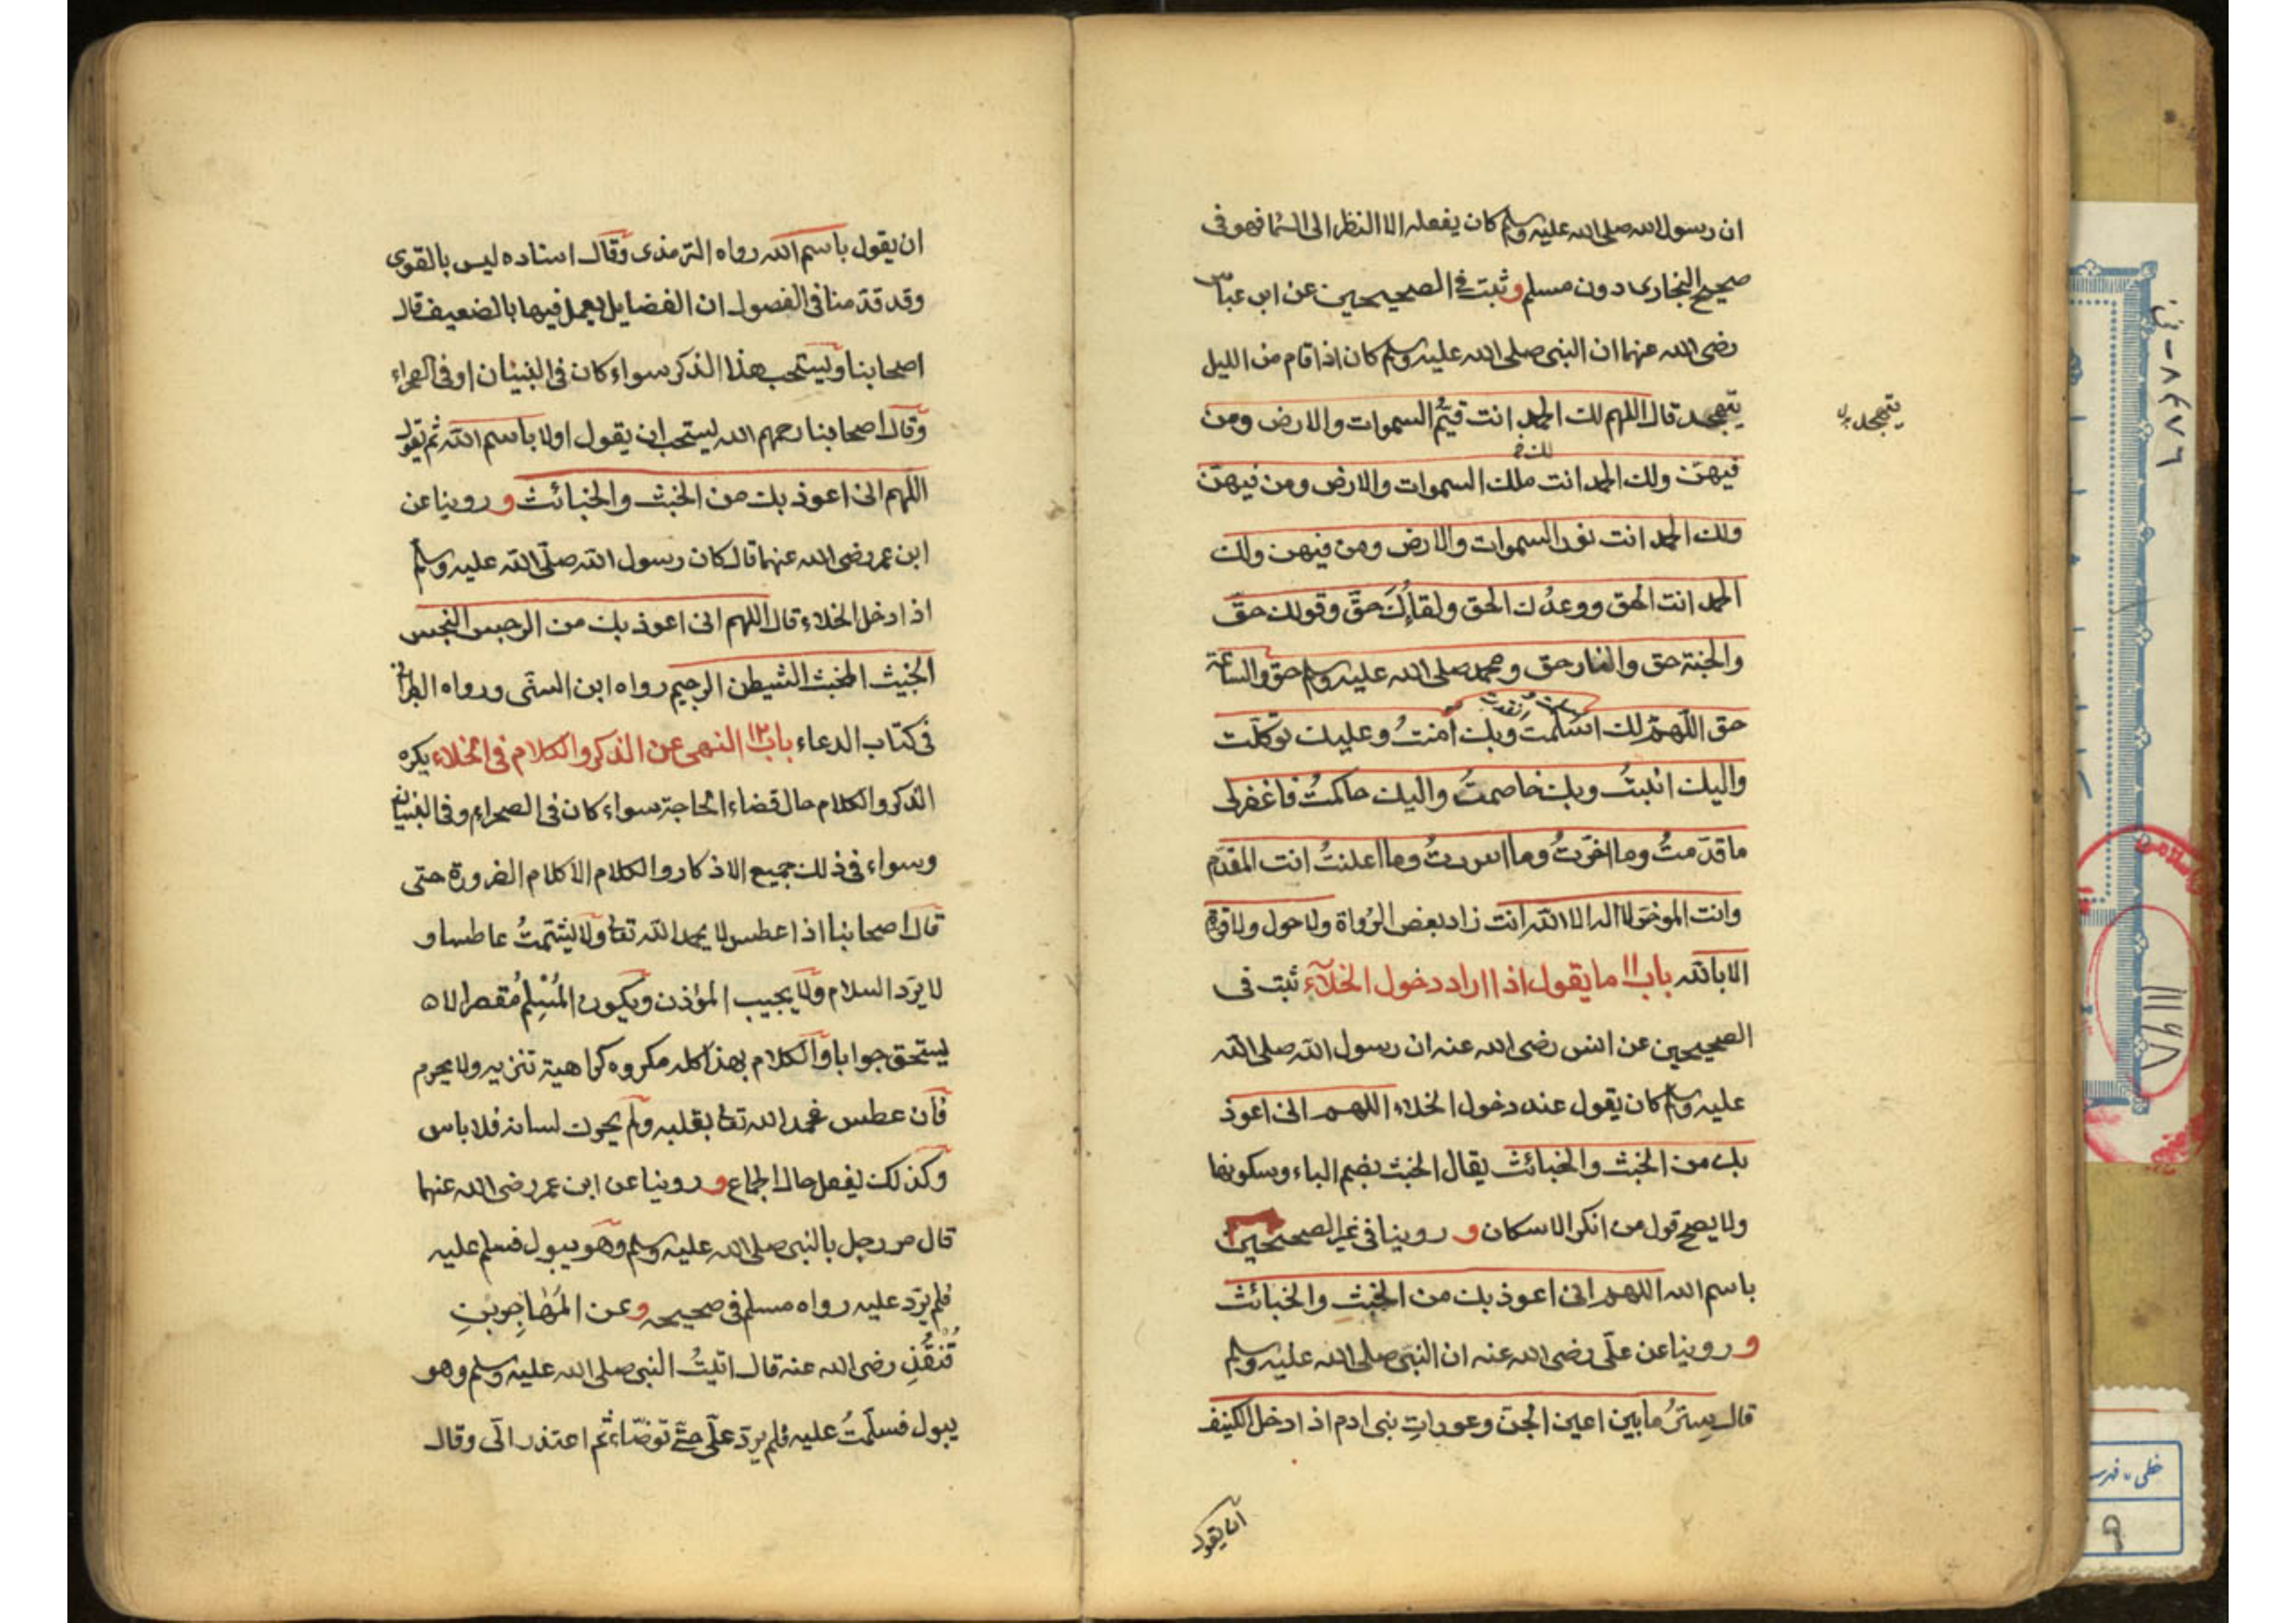 ان رسول الله صلى الله عليه وسلم كان يفعله الا النظر الى السما فهو فى
صحيح البخارى دون مسلم و ثبت فى الصحيحين عن ابن عباس
رضى الله عنهما ان النبى صلى الله عليه وسلم كان اذا قام من الليل
يتهجد قال اللهم لك الحمد انت قيّم السموات والارض ومن
يتهجد
فيهن ولك الحمد انت ملك السموات والارض ومن فيهن
ولك الحمد انت نور السموات والارض ومن فيهن ولك
الحمد انت الحق ووعدك الحق ولقاؤك حقّ وقولك حقّ
والجنة حق والنار حق ومحمد صلى الله عليه وسلم حق والساعة
حق اللّهمّ لك اسلمت وبك امنتُ وعليك توكلت
واليك انبتُ وبك خاصمتُ واليك حاكمتُ فاغفرلى
ما قدّمتُ وما اخّرتُ وما اسررتُ وما اعلنتُ انت المقدّم
وانت الموخر لا اله الا الله انت زاد بعض الرُواة ولا حول ولا قوة
الا بالله باب ١١ ما يقول اذا اراد دخول الخلآء ثبت فى
الصحيحين عن انس رضى الله عنه ان رسول الله صلى الله
عليه وسلم كان يقول عند دخول الخلاء اللهم انى اعوذ
بك من الخبث والخبائث يقال الخبث بضم الباء وسكونها
ولا يصح قول من انكر الاسكان و روينا فى غير الصحيحين
باسم الله اللهم انى اعوذ بك من الخبث والخبائث
و روينا عن علّى رضى الله عنه ان النبى صلى الله عليه وسلم
قال سِترُ ما بين اعين الجن وعوراتِ بنى ادم اذا دخل الكنيف
ان يقول
ان يقول باسم الله رواه الترمذى وقال اسناده ليس بالقوى
وقد قدّمنا فى الفصول ان الفضايل يعمل فيها بالضعيف قال
اصحابنا ويستحب هذا الذكر سواء كان فى البنيان او فى الصحراء
وقال اصحابنا رحمهم الله يستحب ان يقول اولا باسم الله ثم يقول
اللهم انى اعوذ بك من الخبث والخبائث و روينا عن
ابن عمر رضى الله عنهما قال كان رسول الله صلّى الله عليه وسلم
اذا دخل الخلاء قال اللهم انى اعوذ بك من الرجس النجس
الخبيث المخبث الشيطن الرجيم رواه ابن السنّى ورواه الطبرانى
فى كتاب الدعاء باب ١٢ النهى عن الذكر والكلام فى الخلاء يكره
الذكر والكلام حال قضاء الحاجة سواء كان فى الصحراء وفى البنيان
وسواء فى ذلك جميع الاذكار والكلام الا كلام الضرورة حتى
قال اصحابنا اذا عطس لا يحمد الله تعا ولا يشتمتُ عاطسا و
لا يرّد السلام ولا يجيب المؤذن ويكون المُسْلِم مُقصرا لا
يستحق جوابا والكلام بهذا كله مكروه كراهية تنزيه ولا يحرم
فان عطس فحمد الله تعا بقلبه ولم يحرك لسانه فلا باس
وكذلك يفعل حال الجماع و روينا عن ابن عمر رضى الله عنهما
قال مر رجل بالنبى صلى الله عليه وسلم وهو يبول فسلم عليه
فلم يرّد عليه رواه مسلم فى صحيحه و عن المُهاجِر بنِ
قُنْفُذِ رضى الله عنه قال اتيتُ النبى صلى الله عليه وسلم وهو
يبول فسلّمتُ عليه فلم يردّ علّى حتّى توضّاء ثم اعتذر الّى وقال